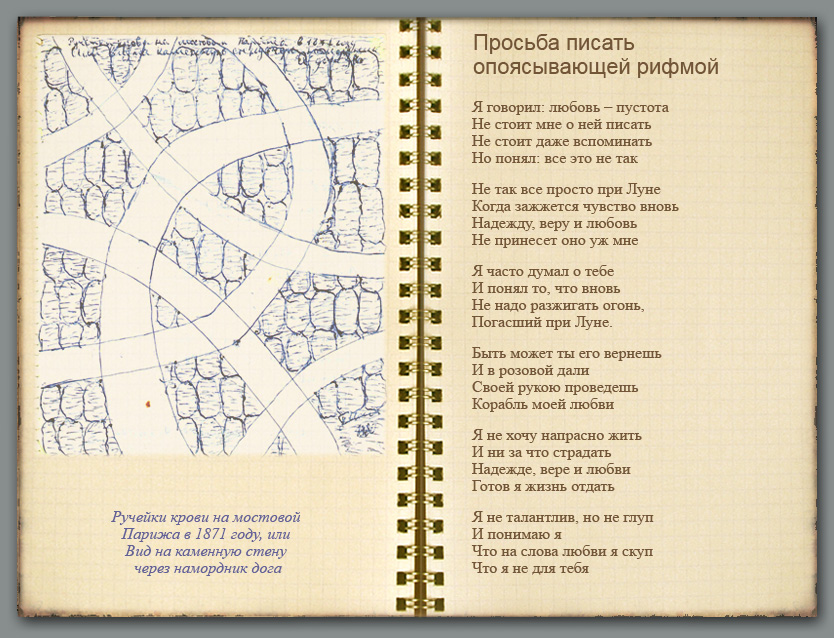 Ручейки крови на мостовой Парижа в 1871 году
или Вид на каменную стену через намордник
дога
Ручейки крови на мостовой
Парижа в 1871 году, или
Вид на каменную стену
через намордник дога
Просьба писать
опоясывающей рифмой
Я говорил: любовь – пустота
Не стоит мне о ней писать
Не стоит даже вспоминать
Но понял: все это не так
Не так все просто при Луне
Когда зажжется чувство вновь
Надежду, веру и любовь
Не принесет оно уж мне
Я часто думал о тебе
И понял то, что вновь
Не надо разжигать огонь,
Погасший при Луне.
Быть может ты его вернешь
И в розовой дали
Своей рукою проведешь
Корабль моей любви
Я не хочу напрасно жить
И ни за что страдать
Надежде, вере и любви
Готов я жизнь отдать
Я не талантлив, но не глуп
И понимаю я
Что на слова любви я скуп
Что я не для тебя